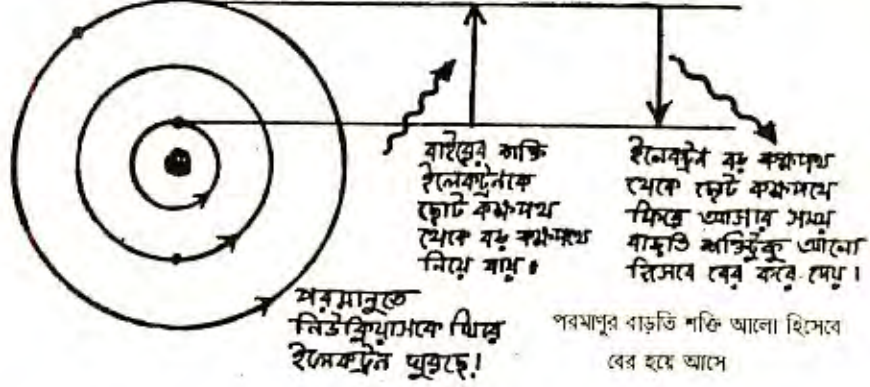 বাইরের শক্তি
ইলেকট্রনকে
ছোট কক্ষপথ
থেকে বড় কক্ষপথে
নিয়ে যায়।
ইলেকট্রন বড় কক্ষপথ
থেকে ছোট কক্ষপথে
ফিরে আসার সময়
বাড়তি শক্তিটুকু আলো
হিসেবে বের করে দেয়।
পরমানুতে
নিউক্লিয়াসকে ঘিরে
ইলেকট্রন ঘুরছে!
পরমাণুর বাড়তি শক্তি আলো হিসেবে
বের হয়ে আসে